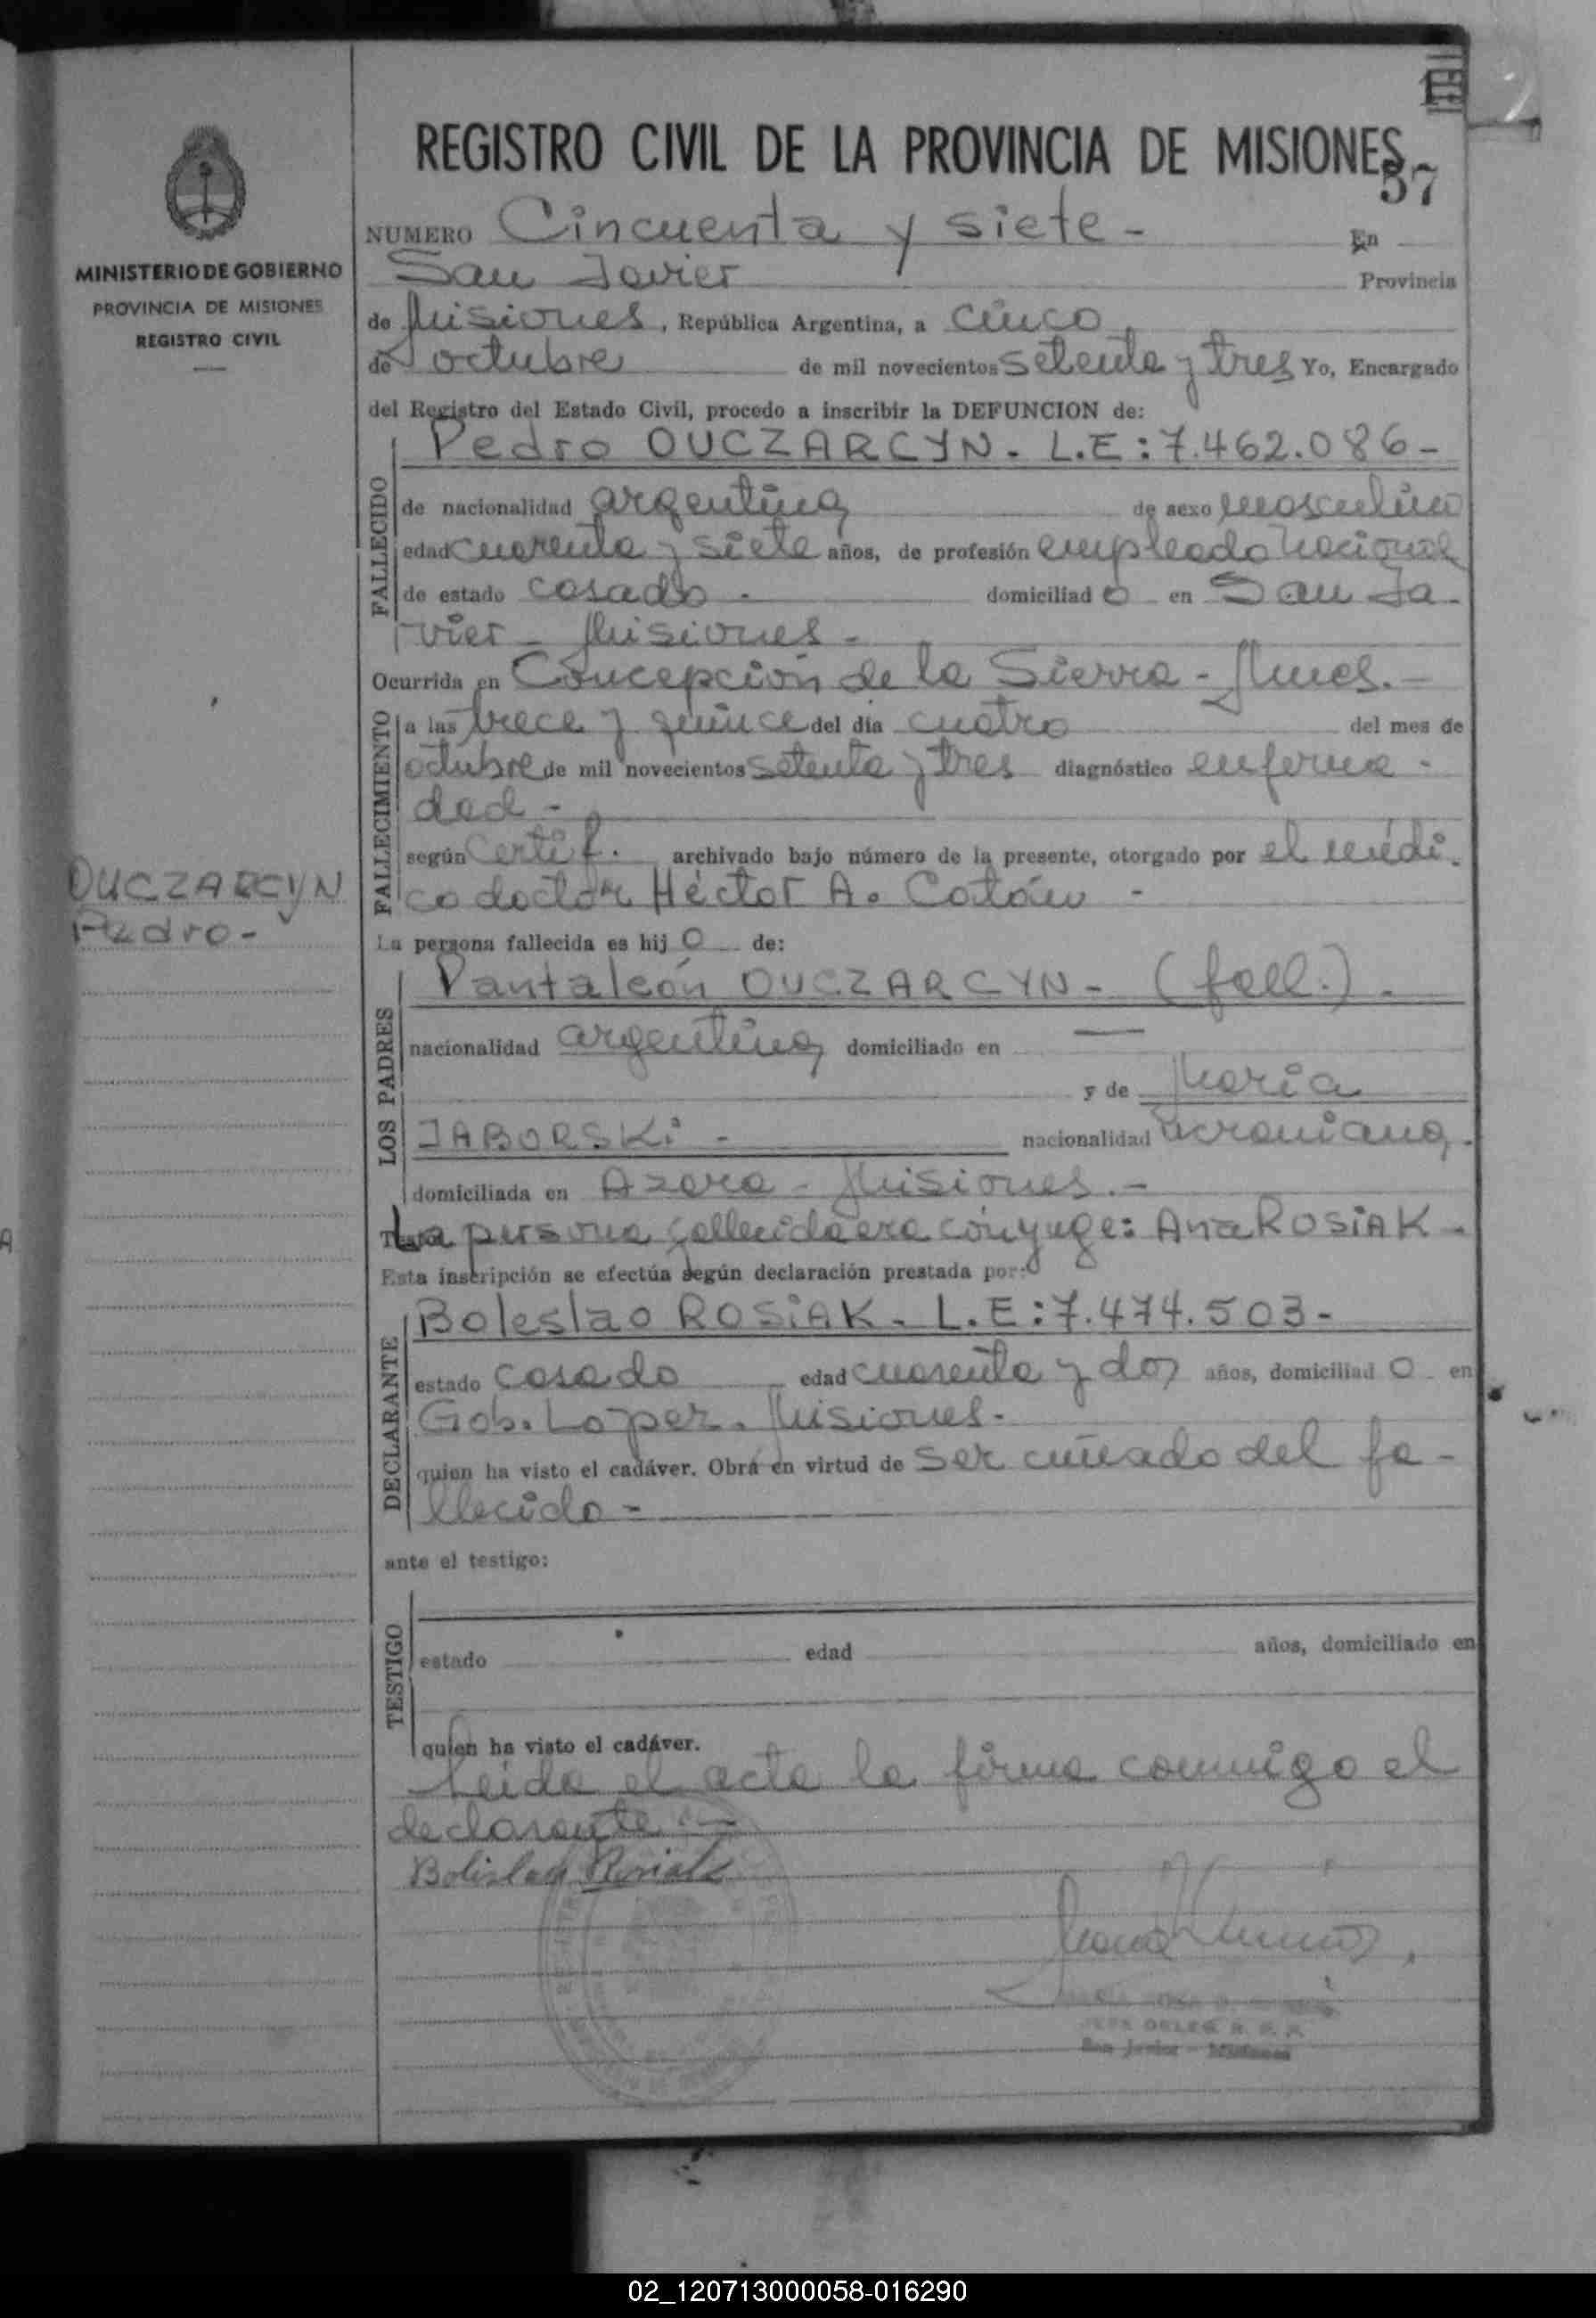 REGISTRO CIVIL DE LA PROVINCIA DE MISIONES
57
MINISTERIO DE GOBIERNO
PROVINCIA DE MISIONES
REGISTRO CIVIL
NUMERO Cincuenta y siete - En
San Javier Provincia
de Misiones, República Argentina, a cinco
de octubre de mil novecientos setenta y tres Yo, Encargado
del Registro del Estado Civil, procedo a inscribir la DEFUNCION de:
FALLECIDO
Pedro OUCZARCYN. L.E: 7.462.086-
de nacionalidad argentina de sexo masculino
edad cuarenta y siete años, de profesión empleado nacional
de estado casado. domiciliad o en San Ja-
vier - Misiones.
Ocurrida en Concepción de la Sierra - Mnes. -
FALLECIMIENTO
a las trece y quince del día cuatro del mes de
octubre de mil novecientos setenta y tres diagnóstico enferme-
dad -
según Certif. archivado bajo número de la presente, otorgado por el médi-
co doctor Héctor A. Catán -
OUCZARCYN
Pedro -
La persona fallecida es hij o de:
LOS PADRES
Pantaleón OUCZARCYN - (fall.).
nacionalidad argentina domiciliado en —
y de María
JABORSKi - nacionalidad ucraniana.
domiciliada en Azara - Misiones. -
La persona fallecida era cónyuge: Ana ROSiAK -
Esta inscripción se efectúa según declaración prestada por:
DECLARANTE
Boleslao ROSiAK - L.E: 7.474.503-
estado casado edad cuarenta y dos años, domiciliad o en
Gob. Lopez. Misiones.
quien ha visto el cadáver. Obra en virtud de ser cuñado del fa-
llecido -
ante el testigo:
TESTIGO
estado edad años, domiciliado en
quien ha visto el cadáver.
Leída el acta la firma conmigo el
declarante -
Bolislao Rosiak
San Javier - Misiones
02_120713000058-016290